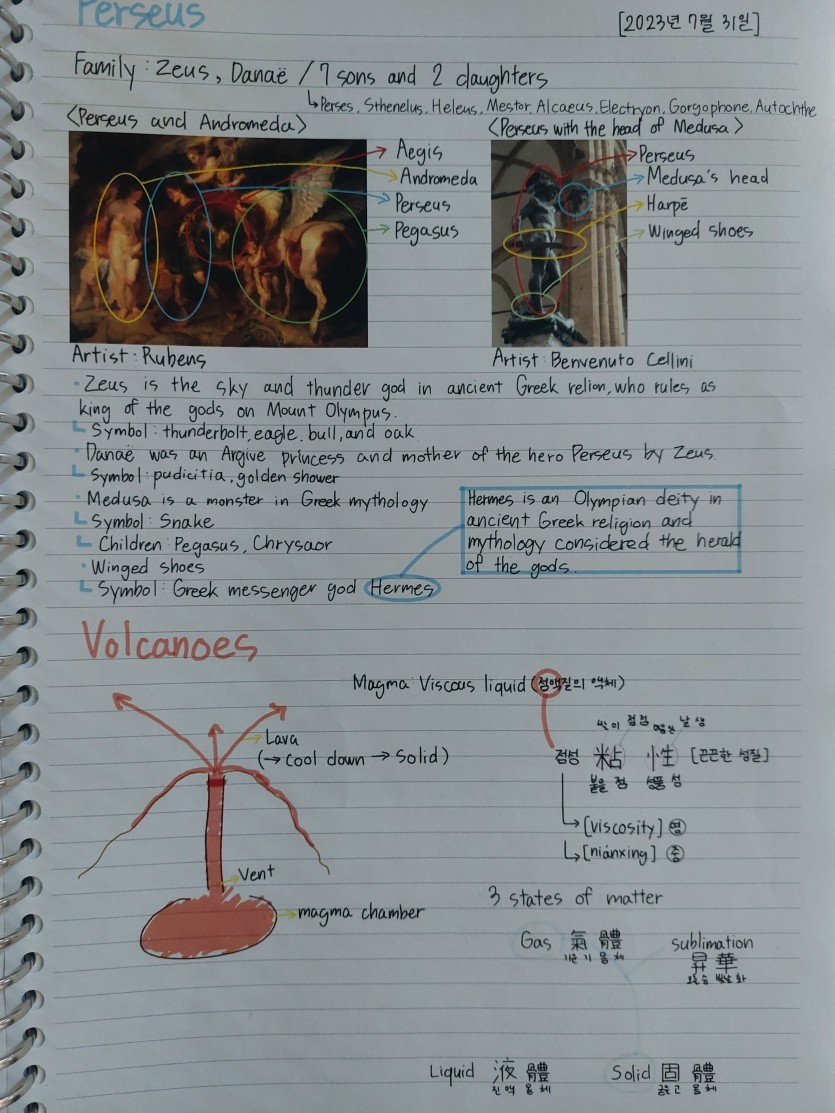 Perseus
[2023년 7월 31일]
Family : Zeus, Danaë / 7 sons and 2 daughters
↳ Perses, Sthenelus, Heleus, Mestor, Alcaeus, Electryon, Gorgophone, Autochthe
<Perseus and Andromeda>
Aegis
Andromeda
Perseus
Pegasus
Artist : Rubens
<Perseus with the head of Medusa>
Perseus
Medusa's head
Harpē
Winged shoes
Artist : Benvenuto Cellini
· Zeus is the sky and thunder god in ancient Greek relion, who rules as
king of the gods on Mount Olympus.
Symbol : thunderbolt, eagle, bull, and oak
· Danaë was an Argive princess and mother of the hero Perseus by Zeus.
Symbol : pudicitia, golden shower
· Medusa is a monster in Greek mythology
Symbol : Snake
Children : Pegasus, Chrysaor
· Winged shoes
Symbol : Greek messenger god Hermes
Hermes is an Olympian deity in
ancient Greek religion and
mythology considered the herald
of the gods.
Volcanoes
Lava
(→ cool down → Solid)
Vent
magma chamber
Magma : Viscous liquid (점액질의 액체)
점성 粘 性 [끈끈한 성질]
붙을 점 성품 성
→ [viscosity] 영
↳ [niánxìng] 중
3 states of matter
Gas 氣 體
기운 기 몸 체
sublimation
昇 華
오를 승 빛날 화
Liquid 液 體
진 액 몸 체
Solid 固 體
굳을 고 몸 체